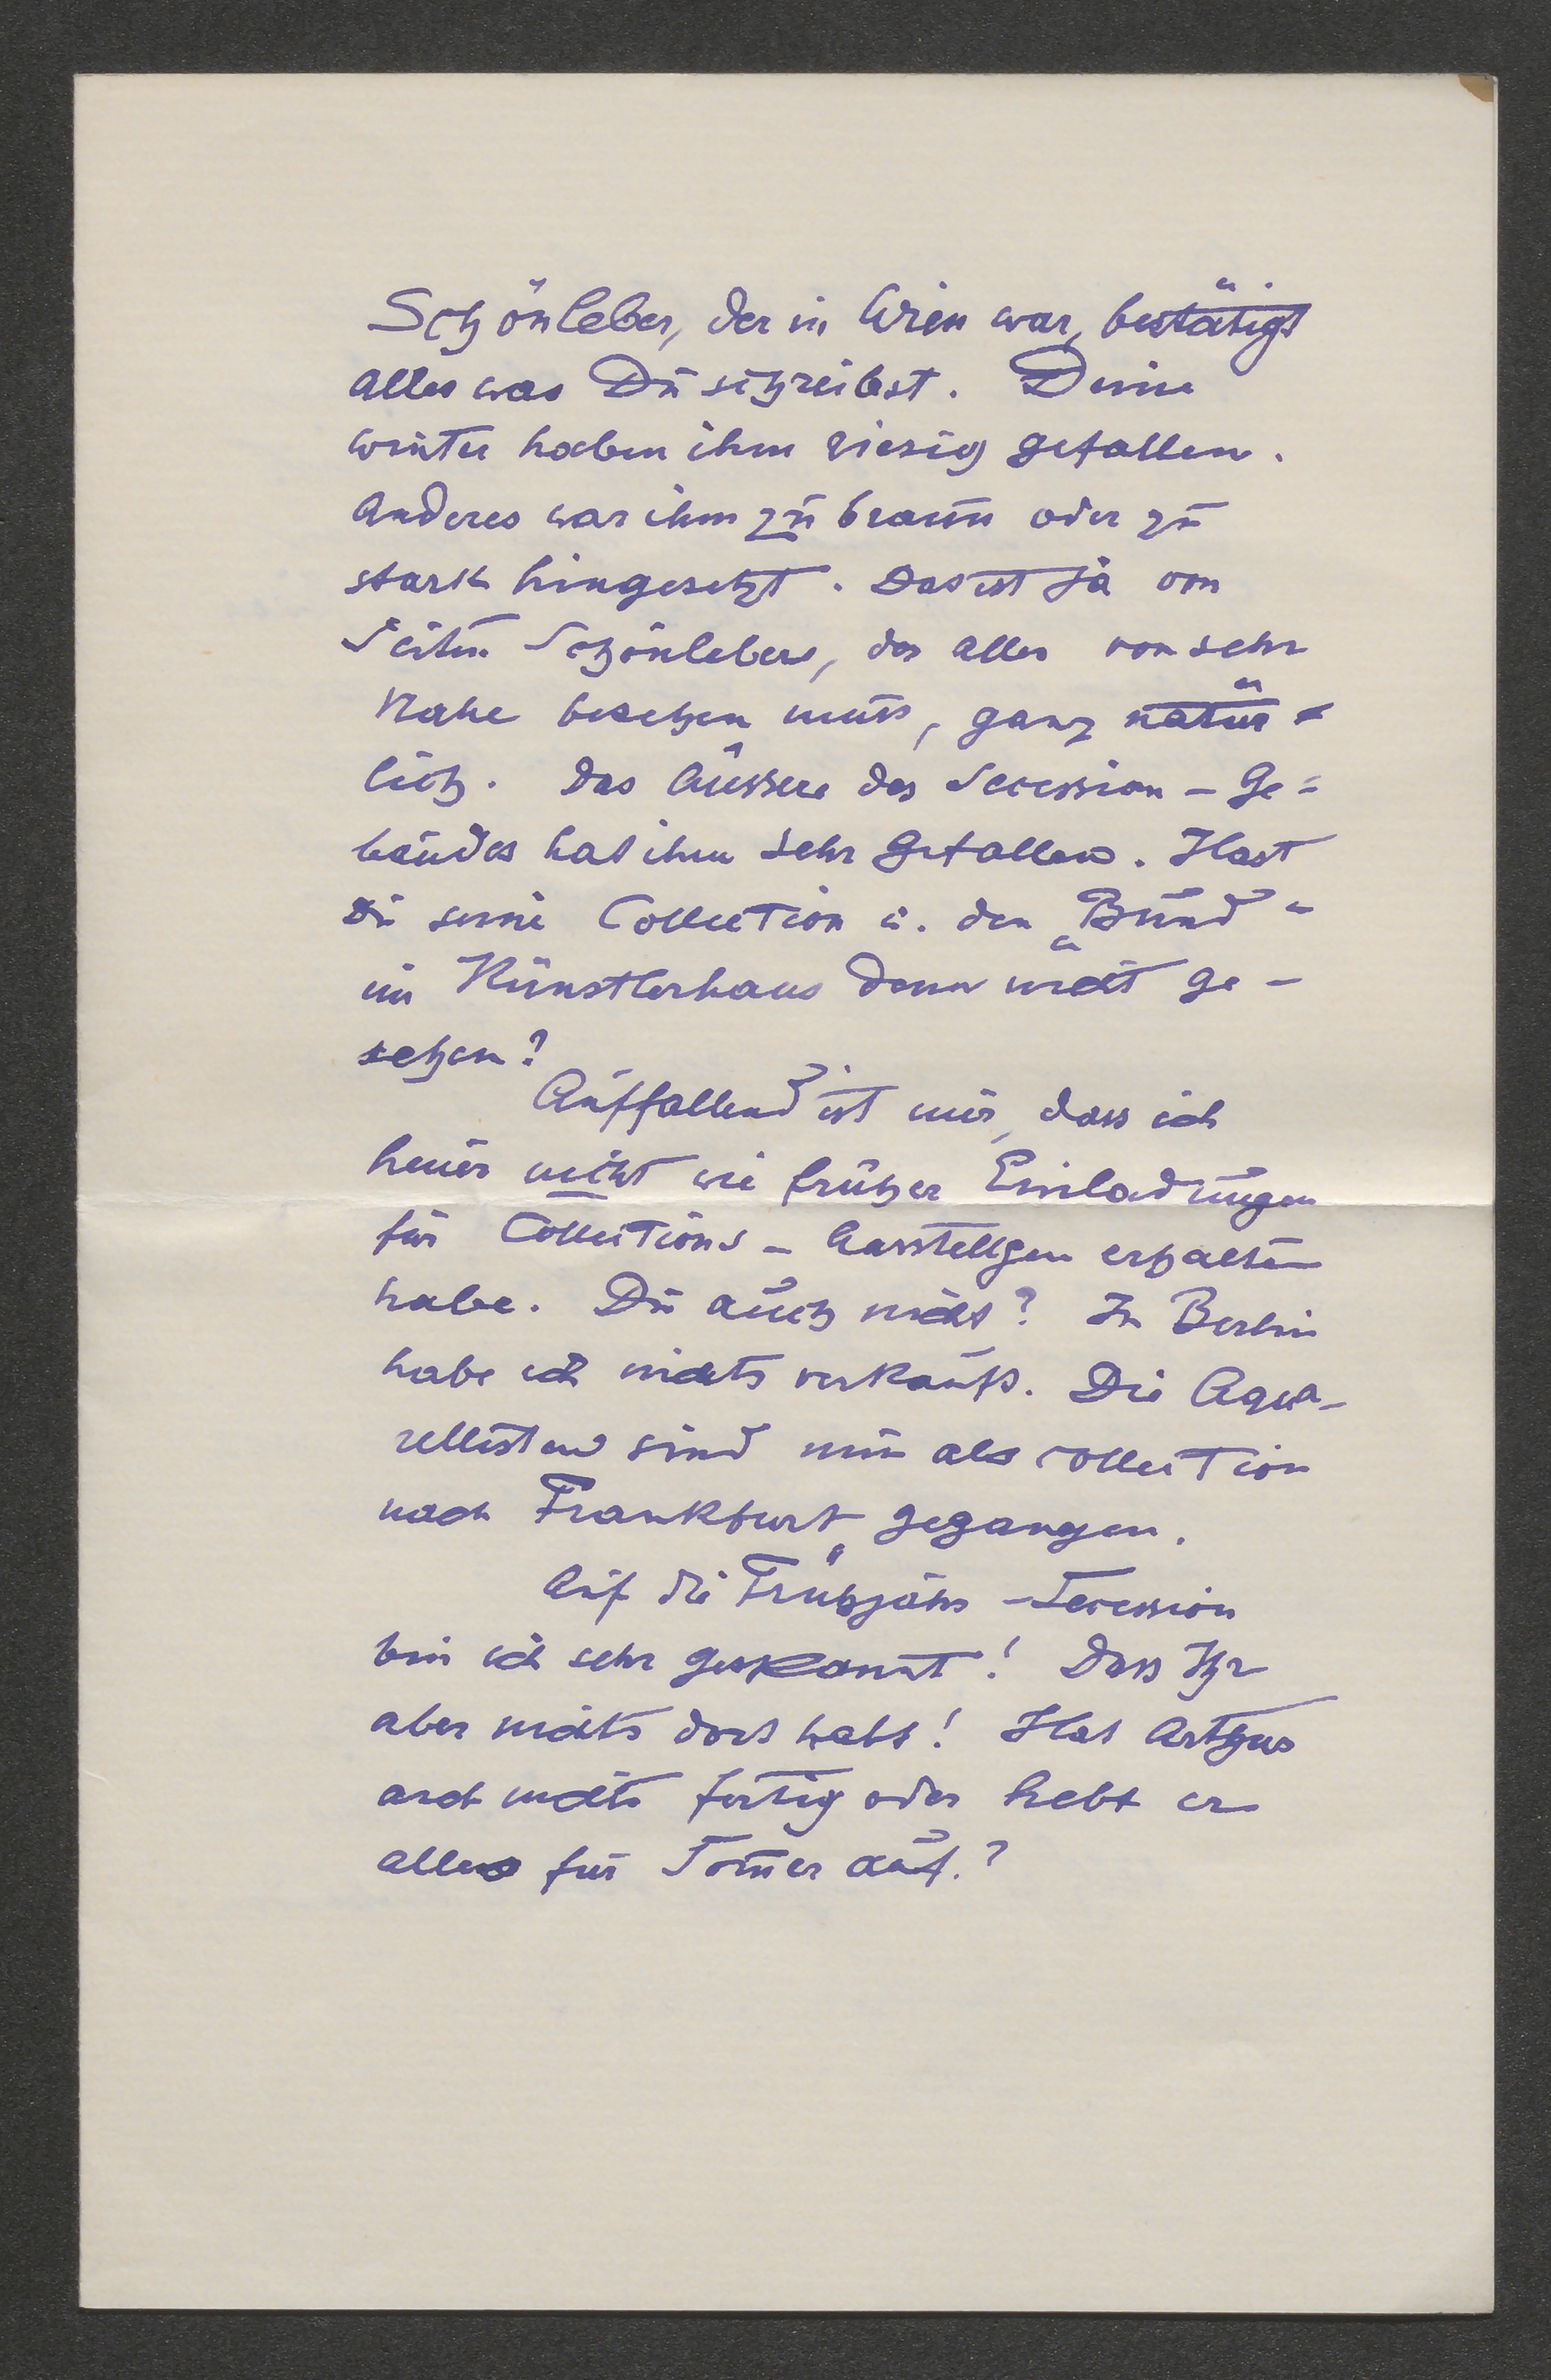 Schönleber, der in Wien war, bestätigt
alles was Du schreibst. Deine
Winter haben ihm riesig gefallen.
Anderes war ihm zu braun oder zu
stark hingesetzt. Das ist ja von
Seiten Schönlebers, der alles von sehr
Nahe besehen muss, ganz natür=
lich. Das Äussere des Secession-Ge=
bäudes hat ihm sehr gefallen. Hast
Du seine Collection u. den „Bund“
im Künstlerhaus denn nicht ge-
sehen?
Auffallend ist mir, dass ich
heuer nicht wie früher Einladungen
für Collections-Ausstellgen erhalten
habe. Du auch nicht? In Berlin
habe ich nichts verkauft. Die Aqua-
rellisten sind nun als Collection
nach Frankfurt gegangen.
Auf die Frühjahr-Secession
bin ich sehr gespannt! Dass Ihr
aber nichts dort habt! Hat Arthur
auch nichts fertig oder hebt er
alles für Som̅er auf.?